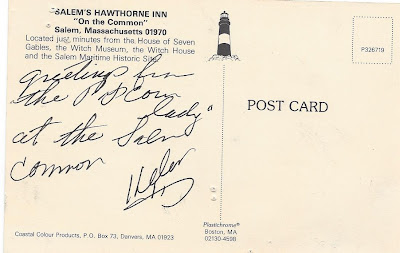 SALEM'S HAWTHORNE INN
"On the Common"
Salem, Massachusetts 01970
Located just minutes from the House of Seven
Gables, the Witch Museum, the Witch House
and the Salem Maritime Historic Site.
P326719
greetings from
the "
lady"
at the Salem
Common
Helen
POST CARD
Coastal Colour Products, P.O. Box 73, Danvers, MA 01923
Plastichrome®
Boston, MA
02130-4598